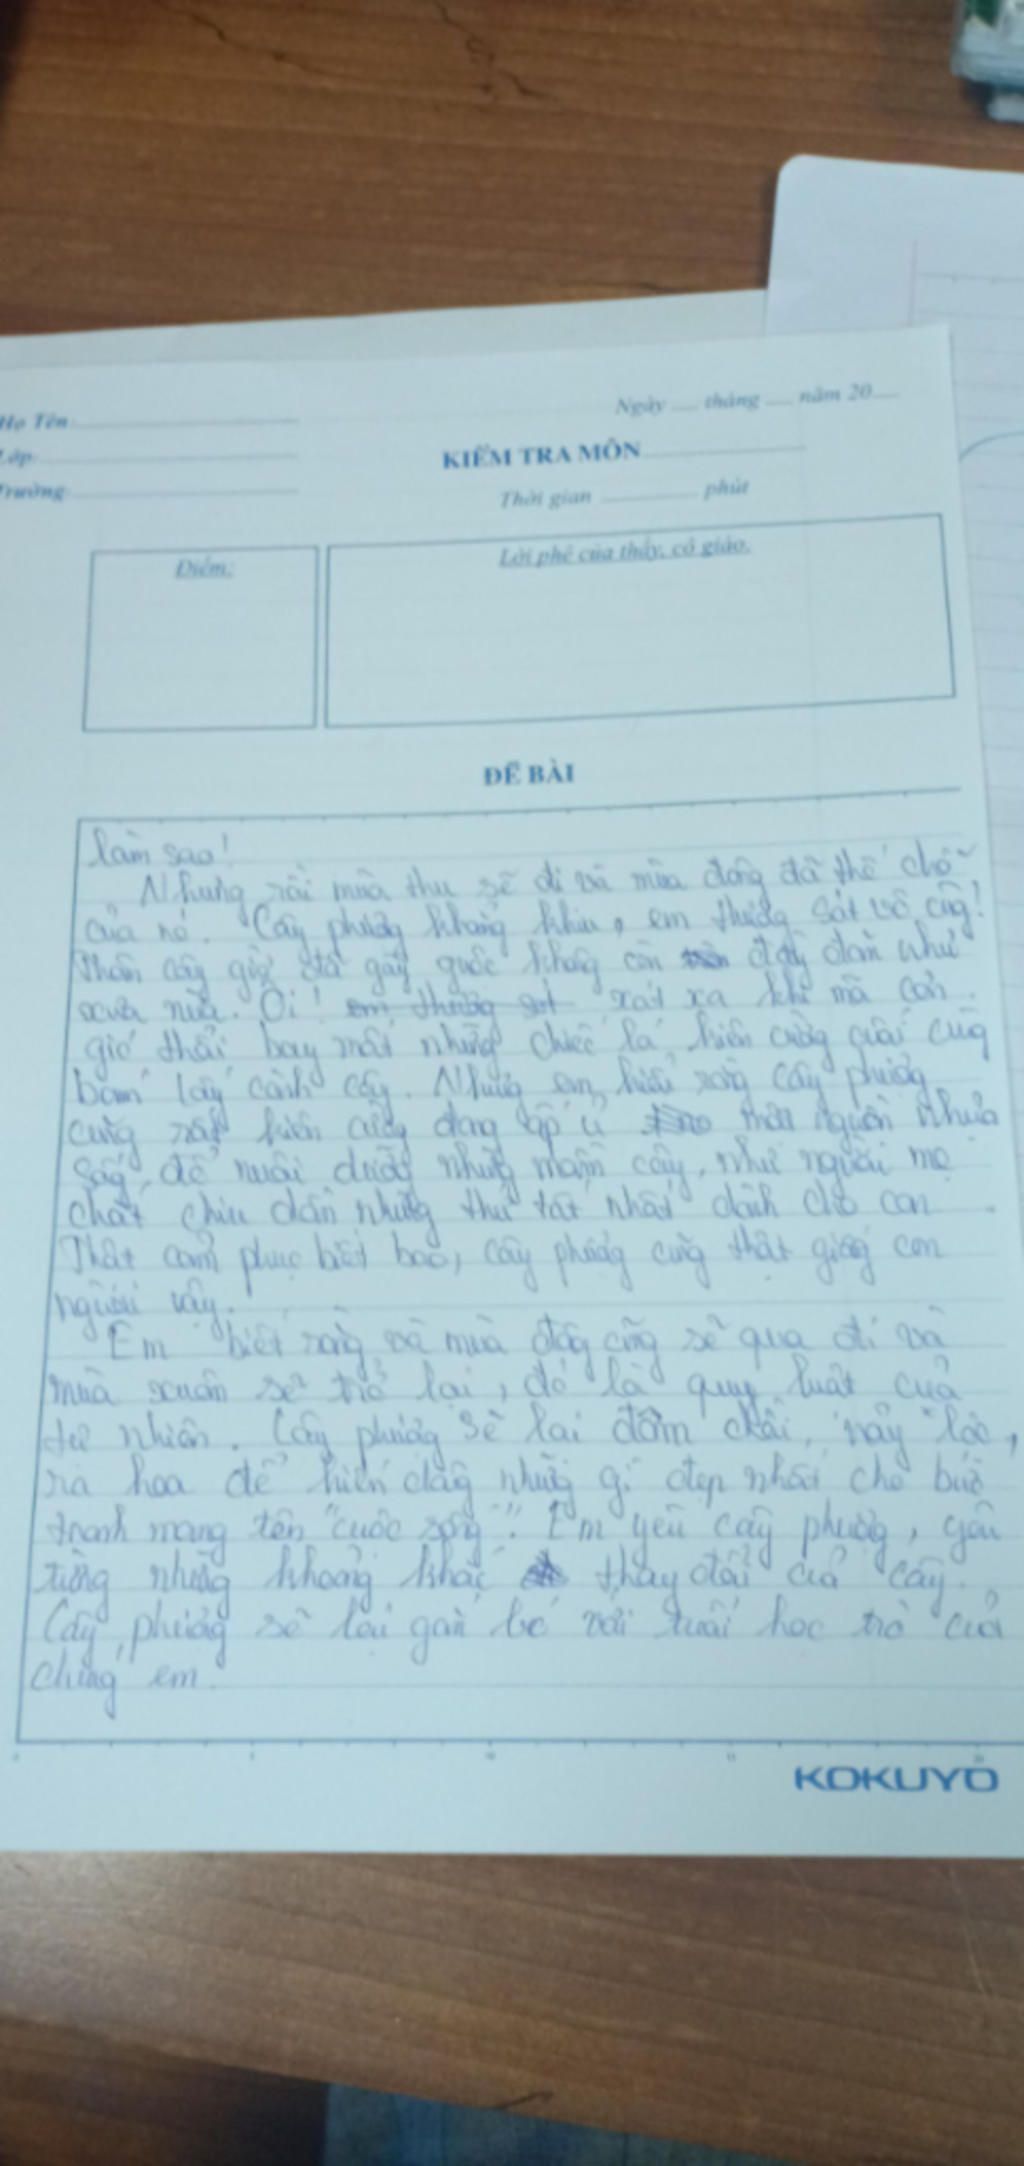 Họ Tên:
Ngày tháng năm 20
Lớp:
KIỂM TRA MÔN
Trường:
Thời gian phút
Điểm:
Lời phê của thầy, cô giáo.
ĐỀ BÀI
làm sao!
Nhưng rồi mùa thu sẽ đi và mùa đông đã thế chỗ
của nó. Cây phượng khẳng khiu, em thương sót vô cùng!
Thân cây giờ đã gầy guộc không còn đầy đặn như
xưa nữa. Ôi! em thương sót xót xa khi mà cơn
gió thổi bay mất những chiếc lá kiên cường cuối cùng
bám lấy cành cây. Nhưng em hiểu rằng cây phượng
cũng rất kiên cường đang ấp ủ một nguồn nhựa
sống, để nuôi dưỡng những mầm cây, như người mẹ
chắt chiu dồn những thứ tốt nhất dành cho con.
Thật cảm phục biết bao, cây phượng cũng thật giống con
người vậy.
Em biết rằng và mùa đông cũng sẽ qua đi và
mùa xuân sẽ trở lại, đó là quy luật của
tự nhiên. Cây phượng sẽ lại đâm chồi, nảy lộc,
ra hoa để hiến dâng những gì đẹp nhất cho bức
tranh mang tên "cuộc sống". Em yêu cây phượng, yêu
từng những khoảng khắc thay đổi của cây.
Cây phượng sẽ lại gắn bó với tuổi học trò của
chúng em.
KOKUYO